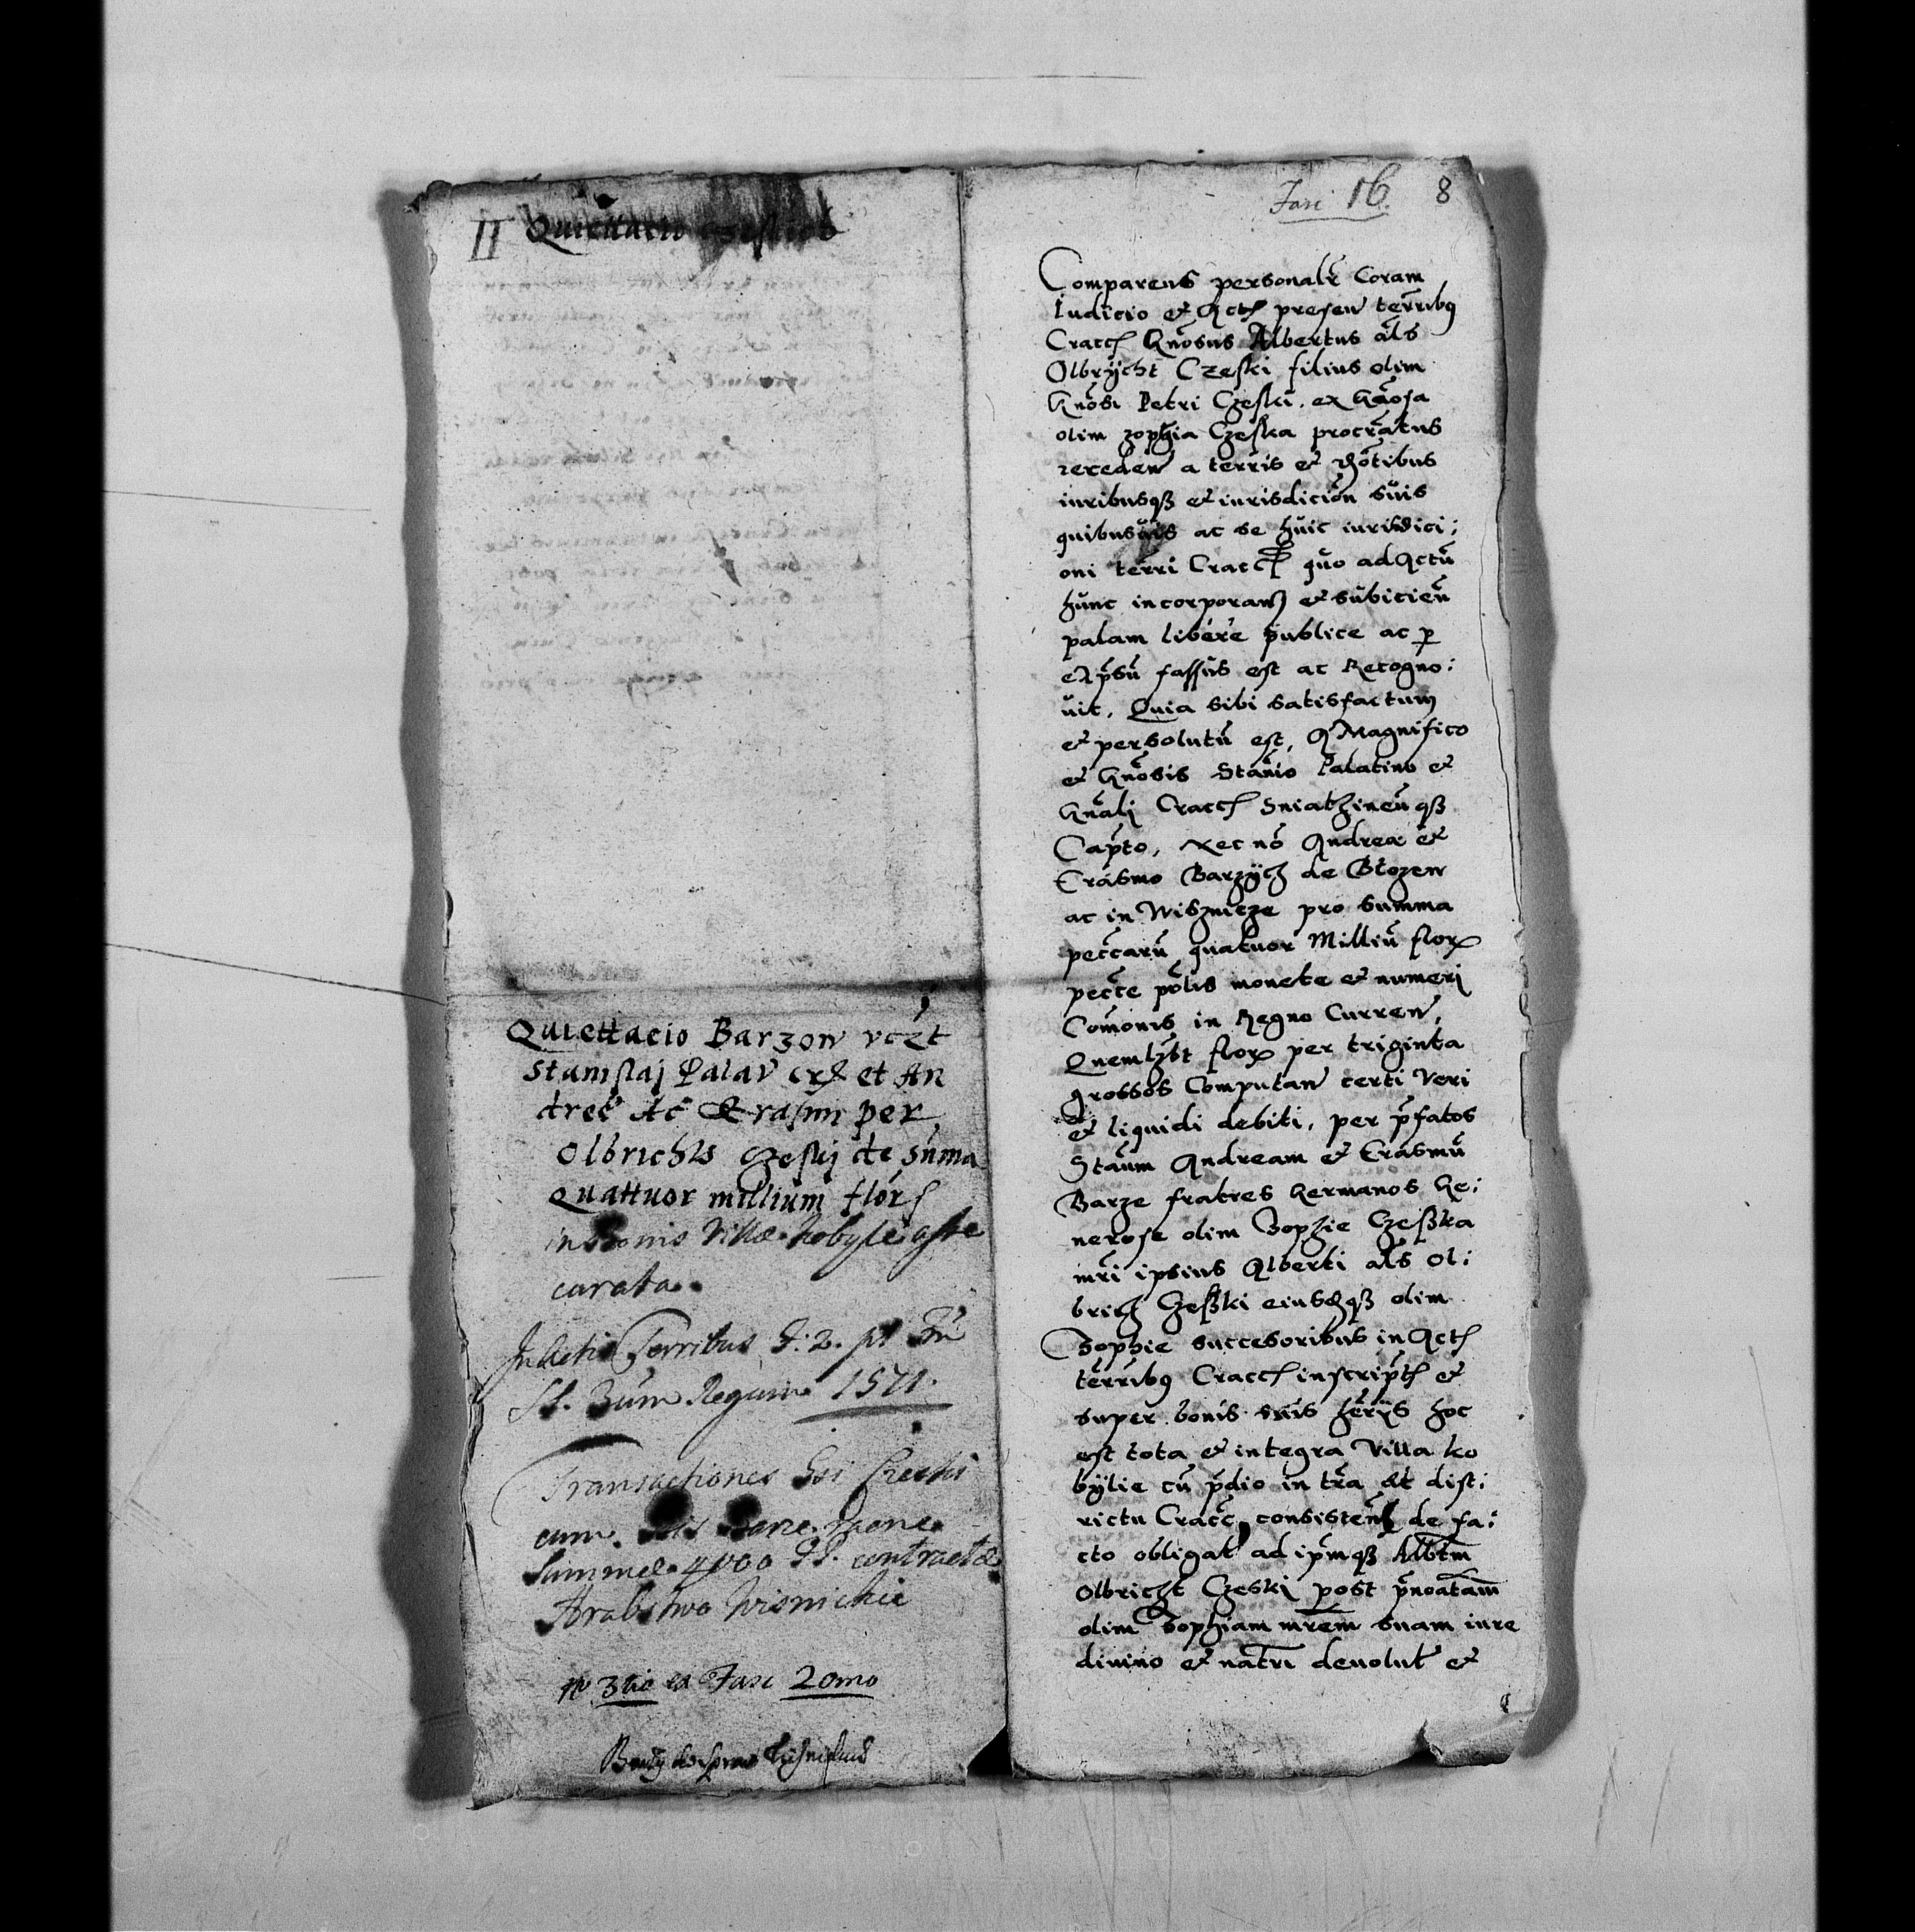 II Quiettacio
Quiettacio Barzow vczt
Stanislaj Palat̃ crac̃ et An
dreẽ Ac̃ Erasmi per
Olbricht Czeskj de sũma
Quattuor millium flor
in bonis Villæ Kobyle asse
curata.
In Actis Terribus
Regum 1571.
Transactiones Czeski
cum Barze rãone
Summæ 4000 contractæ
Hrabstwo Wisnickie
No 3tio ex Fasc 2omo
Fasc 16. 8
Comparens personalr̃ Coram
Iudicio et Actis presen̄ terribus
Cracc̃ Gnõsus Albertus als̃
Olbrÿcht Czeski filius olim
Gnõsi Petri Czeski, ex Gnõsa
olim zophia Czeska procrẽatus
receden̄ a terris et
iuribusqȝ et iurisdiciõn suis
quibusuis ac se huic iurisdici:
oni terrĩ Cracc̃ quo ad Actũ
hunc incorporan̄ et subicien̄
palam libere publice ac p
exp̃sũ fassus est ac Recogno:
uit, Quia sibi satisfactum
et persolutũ est, A Magnifico
et Gnõsis Stãnio Palatino et
Gnãlj Cracc̃ Sniathinen̄qȝ
Cap̃to, Nec nõ Andrea et
Erasmo Barzÿch de Błozew
ac in Wisznicze pro summa
pecc̃arũ quatuor Milliũ flor
pecc̃e põlis monete et numerj
Com̃onis in Regno Curren̄,
Quemlĩbt flor per triginta
grossos Computan̄ certi Veri
et liquidi debiti, per p̃fatos
Stãum Andream et Erasmũ
Barze fratres Germanos Ge:
nerose olim Zophie Czeska
mr̃i ipsius Alberti als̃ Ol:
brich Czeski eiusdqȝ olim
Zophie succesoribus in Actis
terribus Cracc̃ inscrip̃t et
super bonis suis her̃ijs hoc
est tota et integra Villa ko
bÿlie cũ p̃dio in tr̃a et dist:
rictu Cracc̃, consisten̄ de fa:
cto obligat̃ ad ip̃mqȝ Albt̃m
Olbricht Czeski post p̃noatam̃
olim Zophiam mr̃em suam iure
diuino et nat̃ri deuolut̃ et